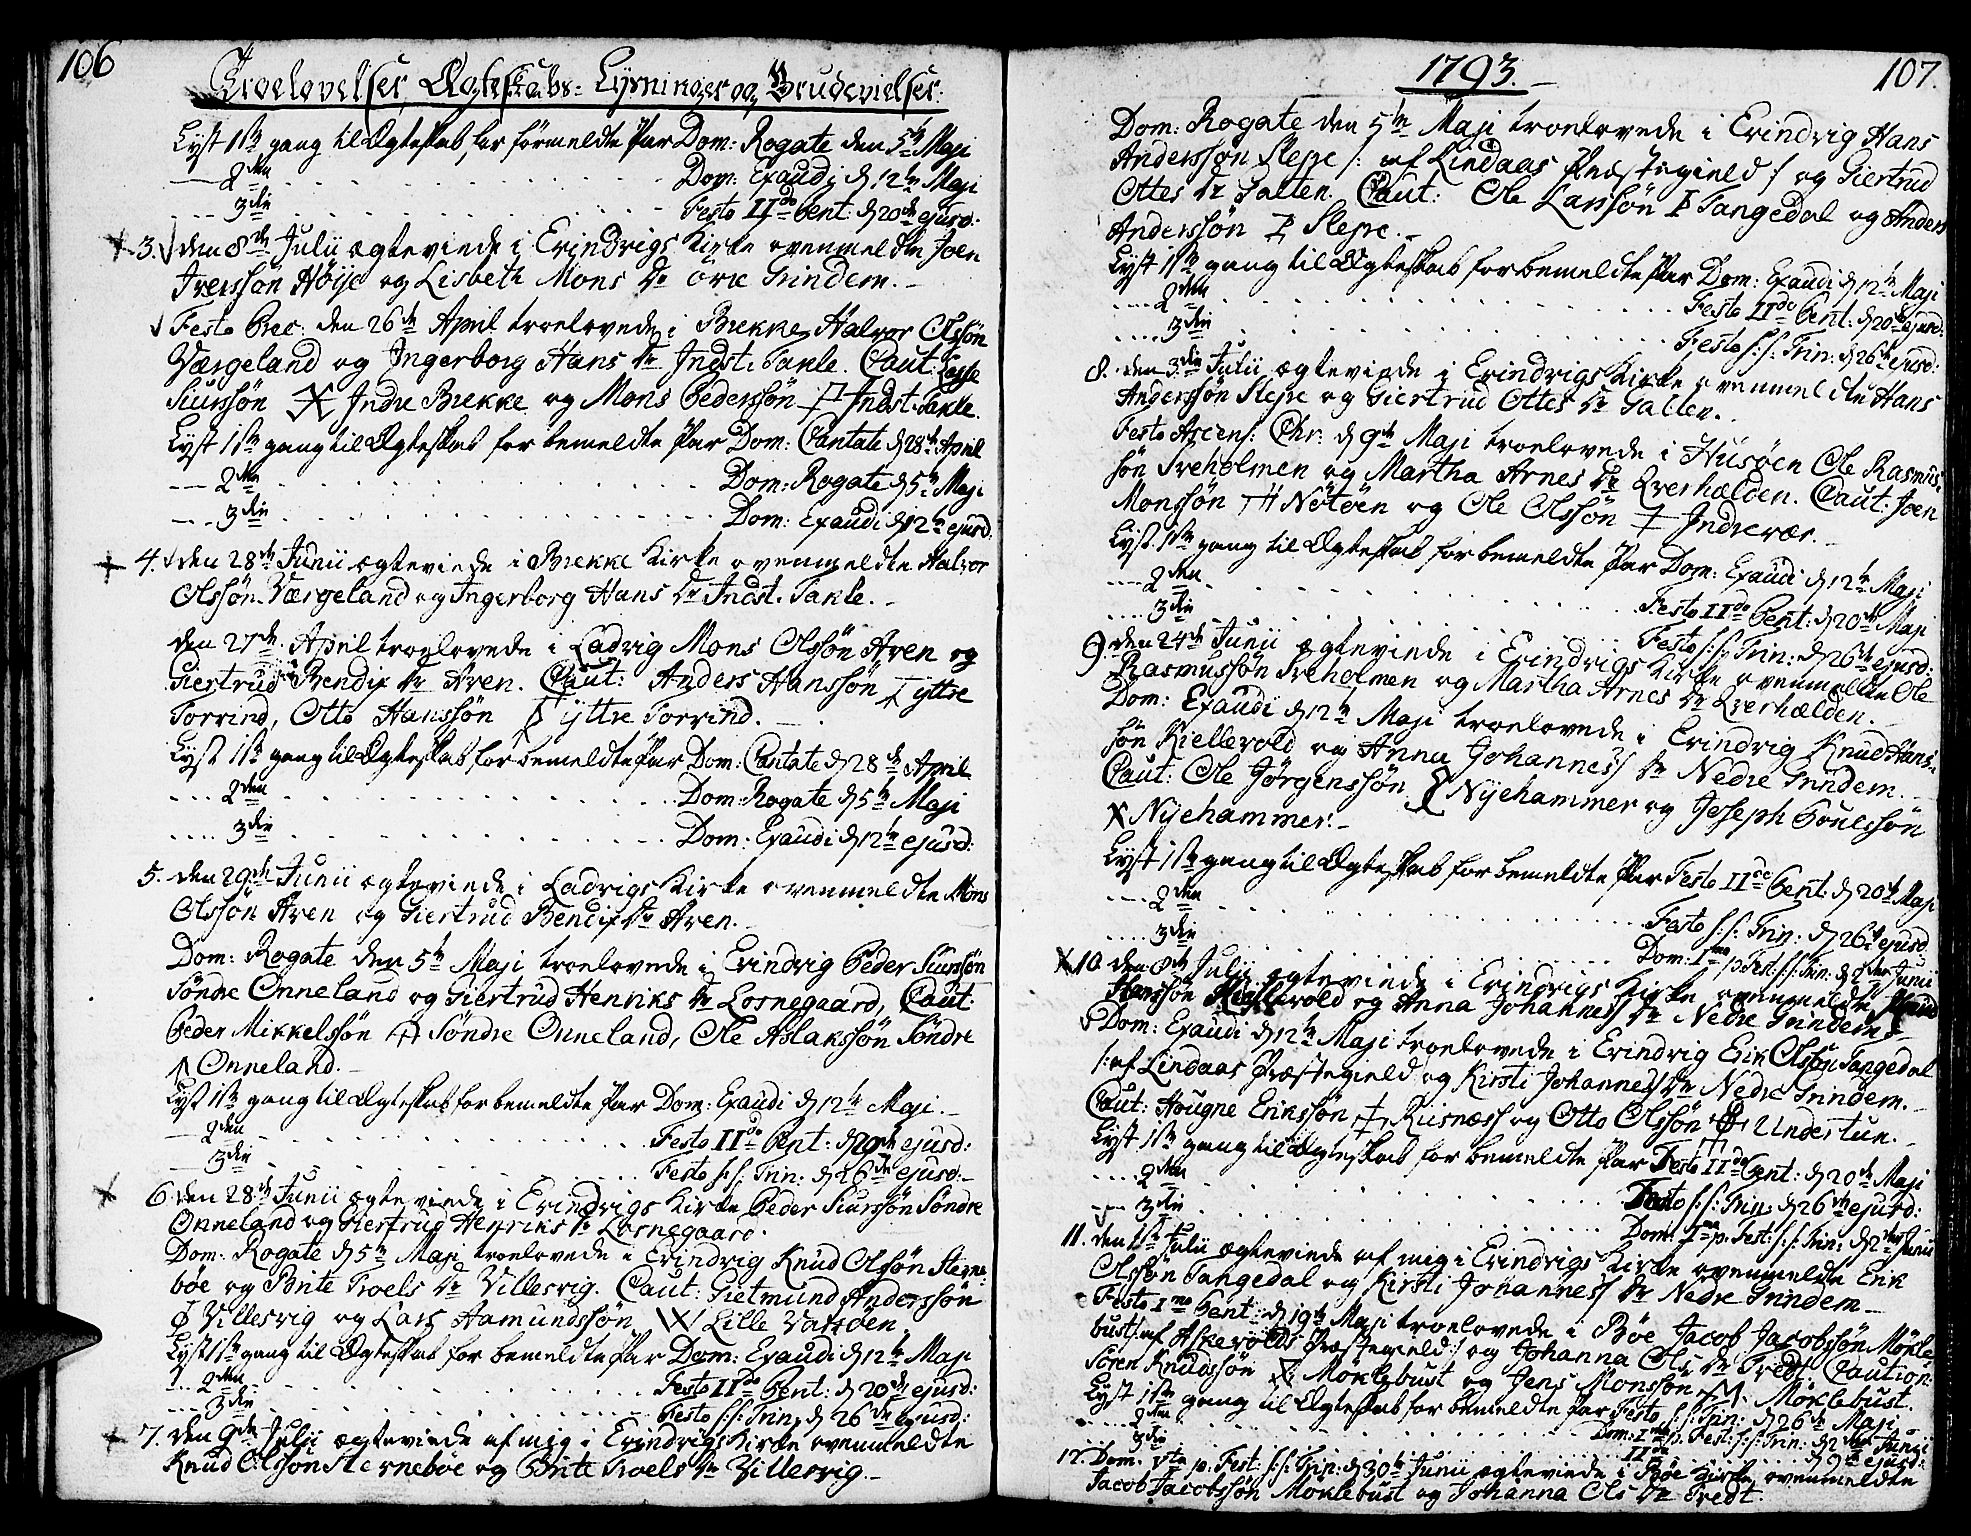 106
Troelovelser, Ægteskabs-Lysninger og Brudevielser.
Lyst 1ste gang til Ægteskab for formeldte Par Dom: Rogate den 5te Maji
2den Dom: Exaudi d 12te Maji
3die Festo IIdo Pent: d 20de ejusd:
3. den 8de Julii ægteviede i Evindvigs Kirke ovenmeldte Joen
Iverssøn Høije og Lisbeth Mons Dr øvre Trindem.
Festo Prec: den 26de April troelovede i Brekke Halvor Olssøn
Værgeland og Ingerborg Hans Dr Indst: Takle. Caut: Lasse
Siurssøn Indre Brekke og Mons Pederssøn Indst: Takle.
Lyst 1ste gang til Ægteskab for bemeldte Par Dom: Cantate d 28de April
2den Dom: Rogate d 5te Maji
3die Dom: Exaudi d 12te ejusd.
4. den 28de Junii ægteviede i Brekke Kirke ovenmeldte Halvor
Olssøn Værgeland og Ingerborg Hans Dr Indst: Takle.
den 27de April troelovede i Ladvig Mons Olssøn Aven og
Giertrud Bendix Dr Aven. Caut: Anders Hanssøn yttre
Torvind, Otto Hanssøn yttre Torvind.
Lyst 1ste gang til Ægteskab for bemeldte Par Dom: Cantate d 28de April
2den Dom: Rogate d 5te Maji
3die Dom: Exaudi d 12te ejusd:
5. den 29de Junii ægteviede i Ladvigs Kirke ovenmeldte Mons
Olssøn Aven og Giertrud Bendix Dr Aven.
Dom: Rogate den 5te Maji troelovede i Evindvig Peder Siurssøn
Søndre Onneland og Giertrud Henriks Dr Losnegaard, Caut:
Peder Mikkelssøn Søndre Onneland, Ole Aslakssøn Søndre
Onneland.
Lyst 1ste gang til Ægteskab for bemeldte Par Dom: Exaudi d 12te Maji.
2den Festo IIdo Pent: d 20de ejusd:
3die Festo s:s: Trin: d 26de ejusd:
6. den 28de Junii ægteviede i Evindvigs Kirke Peder Siurssøn Søndre
Onneland og Giertrud Henriks Dr Losnegaard.
Dom: Rogate d 5te Maji troelovede i Evindvig Knud Olssøn Sterne-
bøe og Brite Troels Dr Villesvig. Caut: Gietmund Anderssøn
Villesvig og Lars Aamundssøn Lille Vatsøen
Lyst 1ste gang til Ægteskab for bemeldte Par Dom: Exaudi d 12te Maji
2den Festo IIdo Pent: d 20de ejusd:
3die Festo s:s: Trin: d 26de ejusd:
7. den 9de Julii ægteviede af mig i Evindvigs Kirke ovenmeldte
Knud Olssøn Sternebøe og Brite Troels Dr Villesvig.
1793.
107.
Dom: Rogate den 5te Maji troelovede i Evindvig Hans
Anderssøn Slepe /: af Lindaas Præstegield :/ og Giertrud
Ottes Dr Galten. Caut: Ole Larssøn Tangedal og Anders
Anderssøn Slepe.
Lyst 1ste gang til Ægteskab for bemeldte Par Dom: Exaudi d 12te Maji
2den Festo IIdo Pent: d 20de ejusd:
3die Festo s:s: Trin: d 26de ejusd:
8. den 3die Julii ægteviede i Evindvigs Kirke ovenmeldte Hans
Anderssøn Slepe og Giertrud Ottes Dr Galten.
Festo Ascens: Chr: d 9de Maji troelovede i Husøen Ole Rasmus-
søn Træholmen og Martha Arnes Dr Qverhælden. Caut: Joen
Monssøn Nøtøen og Ole Olssøn Indrevær.
Lyst 1ste gang til Ægteskab for bemeldte Par Dom: Exaudi d 12te Maji
2den Festo IIdo Pent: d 20de Maji
3die Festo s:s: Trin: d 26de ejusd:
9. den 24de Junii ægteviede i Evindvigs Kirke ovenmeldte Ole
Rasmussøn Træholmen og Martha Arnes Dr Qverhælden.
Dom: Exaudi d 12te Maji troelovede i Evindvig Knud Hans-
søn Kiellevold og Anna Johannes Dr Nedre Trindem.
Caut: Ole Jørgenssøn Nyehammer og Joseph Poulssøn
Nyehammer.
Lyst 1ste gang til Ægteskab for bemeldte Par Festo IIdo Pent: d 20de Maji
2den Festo s:s: Trin: d 26de ejusd
3die Dom: Ima p. Fest: s:s: Trin: d 2den Junii
10. den 8de Julii ægteviede i Evindvigs Kirke ovenmeldte Knud
Hanssøn Kiellevold og Anna Johannes Dr Nedre Trindem.
Dom: Exaudi d 12te Maji troelovede i Evindvig Erik Olssøn Tangedal
/: af Lindaas Præstegield og Kirsti Johannes Dr Nedre Trindem.
Caut: Hougne Erikssøn Riisnæss og Otto Olssøn Undertun.
Lyst 1ste gang til Ægteskab for bemeldte Par Festo IIdo Pent: d 20de Maji
2den Festo s:s: Trin: d 26de ejusd:
3die Dom: Ima p. Fest: s:s: Trin: d 2den Junii
11. den 1ste Julii ægteviede af mig i Evindvigs Kirke ovenmeldte Erik
Olssøn Tangedal og Kirsti Johannes Dr Nedre Trindem
Festo Imo Pent: d 19de Maji troelovede i Bøe Jacob Jacobssøn Møkle-
bust /: af Askevolds Præstegield :/ og Johanna Ols Dr Tredt. Caution:
Søren Knudssøn Møklebust og Jens Monssøn Møklebust.
Lyst 1ste gang til Ægteskab for bemeldte Par Festo s:s: Trin: d 26de Maji
2den Dom: Ima p. Fest: s:s: Trin: d 2den Junii
3die IIda d 9de ejusd:
12. Dom: Vta p. Fest: s:s: Trin: d 30te Junii ægteviede i Bøe Kirke ovenmeldte
Jacob Jacobssøn Møklebust og Johanna Ols Dr Tredt.